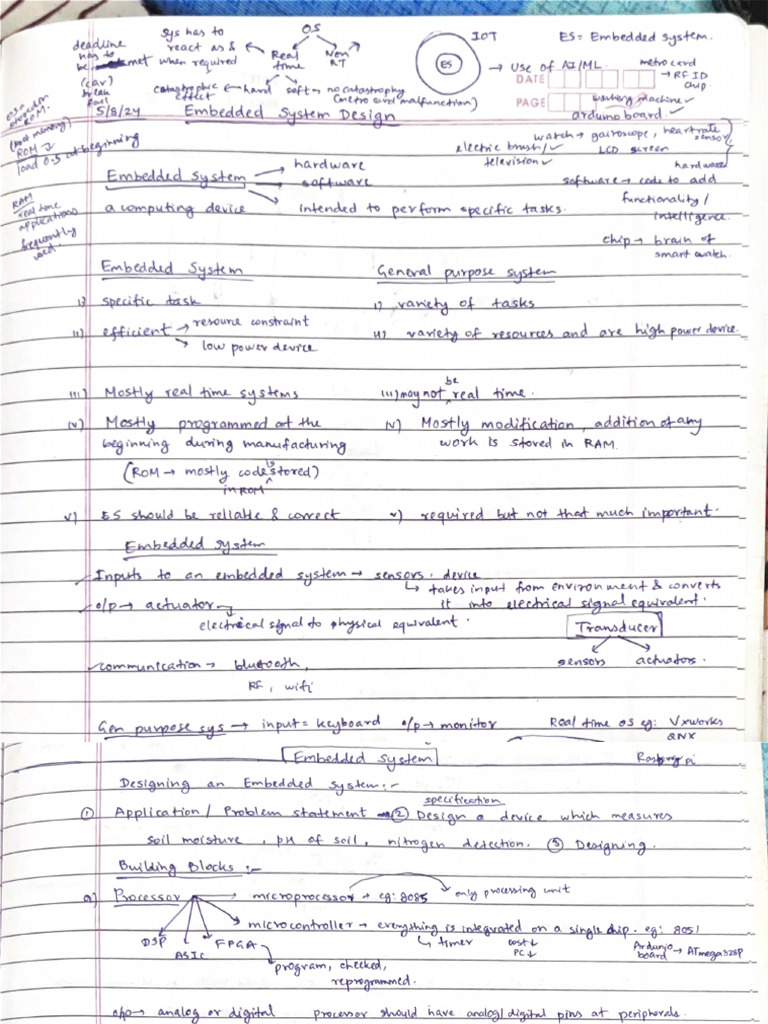 OS
IOT
ES = Embedded System.
deadline has to be met
sys has to react as & when required
Real time
Non RT
ES
→ Use of AI/ML.
metro card → RFID chip
(car) break fail
catastrophic effect ← hard
soft → no catastrophy
(metro card malfunction)
DATE
PAGE
washing machine ✓
arduino board ✓
5/8/24
Embedded System Design
(boot memory)
ROM ↓
load O.S at beginning
watch → gairoscope, heartrate sensor,
electric brush/✓
LCD screen
television ✓
hardware
Embedded System → hardware
→ software
software → code to add
functionality/
intelligence.
RAM
real time
applications
frequently
used.
a computing device
intended to perform specific tasks.
chip → brain of
smart watch.
Embedded System
General purpose system
i) specific task
i) variety of tasks
ii) efficient → resource constraint
→ low power device
ii) variety of resources and are high power device.
iii) Mostly real time systems
iii) may not be real time.
iv) Mostly programmed at the
beginning during manufacturing
iv) Mostly modification, addition of any
work is stored in RAM.
(ROM → mostly code is stored)
in ROM
v) ES should be reliable & correct
v) required but not that much important.
Embedded System
Inputs to an embedded system → sensors. device
↳ takes input from environment & converts
it into electrical signal equivalent.
o/p → actuator
electrical signal to physical equivalent.
Transducer
sensors
actuators.
communication → bluetooth,
RF, wifi
Gen purpose sys → input = keyboard o/p → monitor
Real time OS eg: Vxworks
QNX
Embedded System
Designing an Embedded System:-
specification
① Application / Problem statement → ② Design a device which measures
soil moisture, pH of soil, nitrogen detection. ③ Designing.
Building Blocks :-
a) Processor → microprocessor → eg: 8085
only processing unit
microcontroller → everything is integrated on a single chip. eg: 8051
↳ timer
cost↓
PC↓
Arduino board → ATmega328P
DSP
ASIC
FPGA
program, checked,
reprogrammed.
o/p → analog or digital
processor should have analog/digital pins at peripherals.